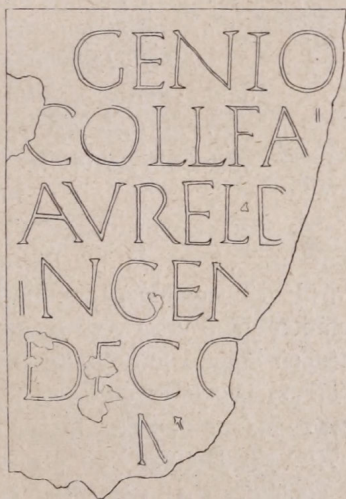 GENIO
COLLFA
AVREL·D
INGEN
DEC
N